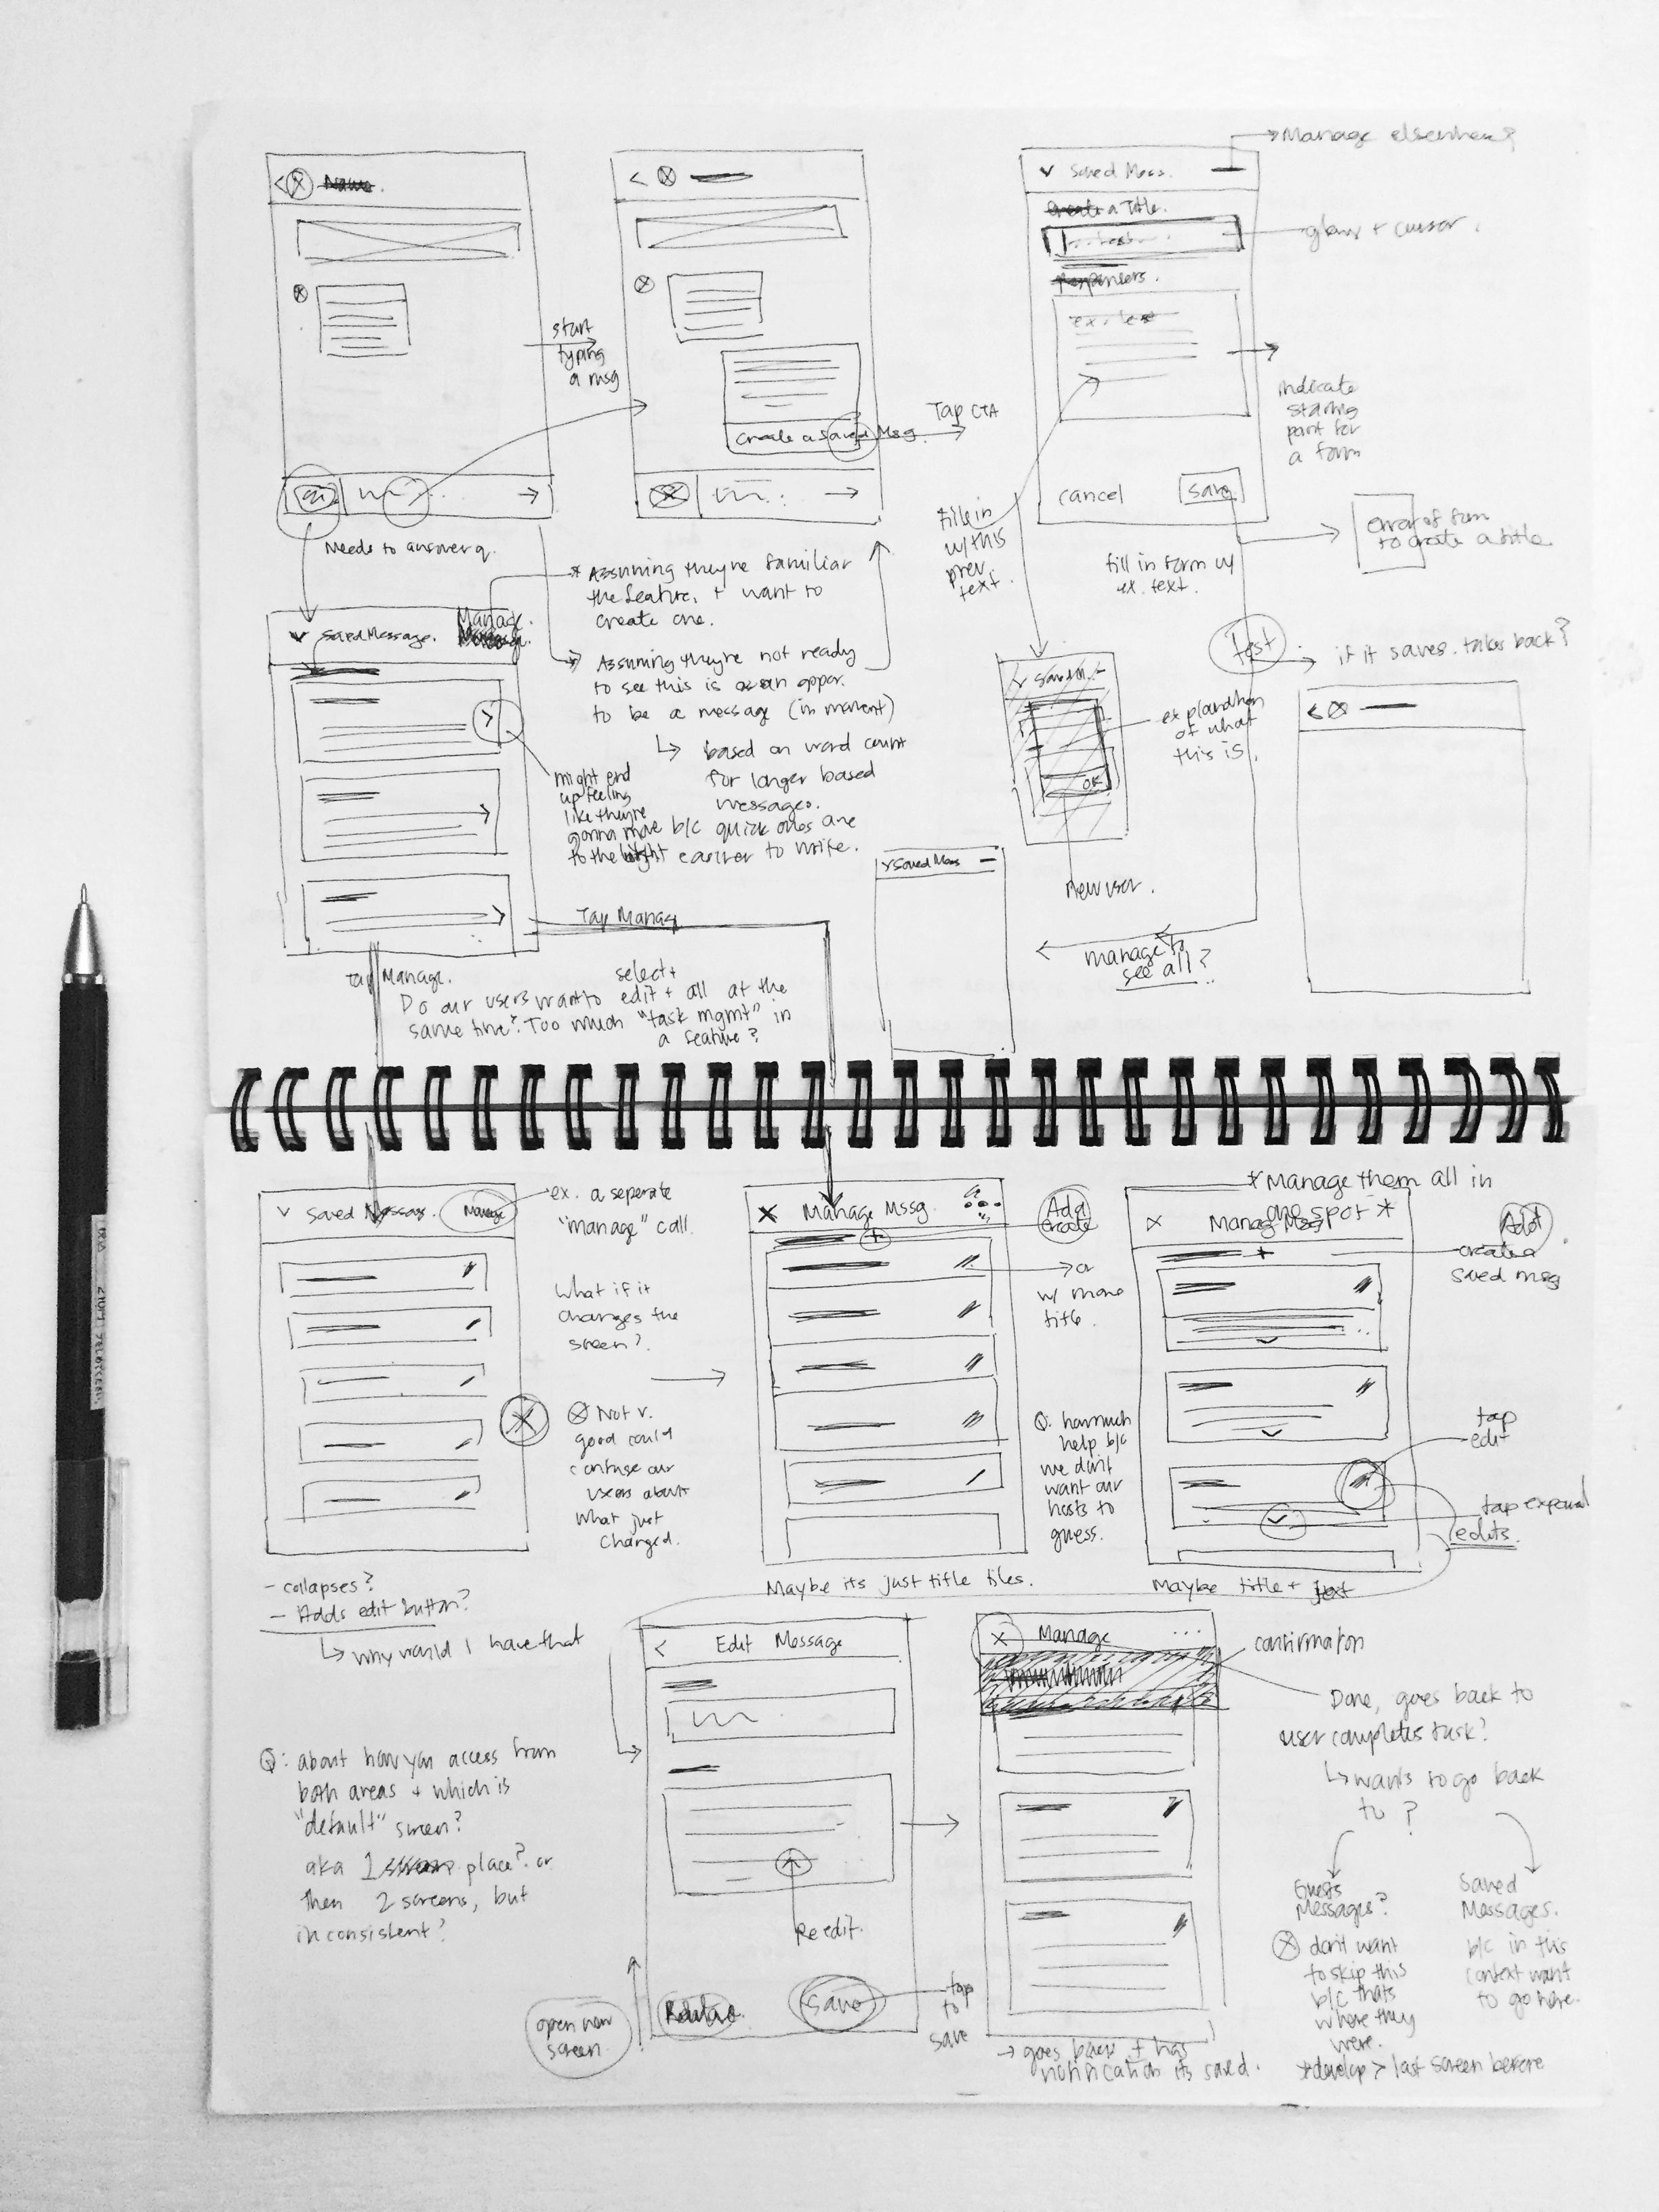 Name.
start
typing
a msg
Needs to answer q.
Create a Saved Msg.
Tap CTA
Manage elsewhere?
Saved Mess.
Create a Title.
glow + cursor.
Responses.
ex. text
indicate
starting
point for
a form
cancel
Save
error of form
to create a title
fill in
w/ this
prev.
text.
fill in form w/
ex. text.
Test
if it saves. takes back?
Saved Message.
Manage.
* Assuming they're familiar
the feature, + want to
create one.
Assuming they're not ready
to see this is an oppor.
to be a message (in moment)
↳ based on word count
for longer based
messages.
b/c quick ones are
easier to write.
might end
up feeling
like they're
gonna move
to the right
Saved M.
OK
explanation
of what
this is.
New user.
Saved Mess
manage to
see all?
Tap Manage
Tap Manage.
select +
Do our users want to edit + all at the
same time? Too much "task mgmt" in
a feature?
Saved Message.
Manage
ex. a seperate
"manage" call.
What if it
changes the
screen?
Not v.
good could
confuse our
users about
what just
changed.
- collapses?
- Adds edit button?
↳ why would I have that
Manage Mssg.
Add
create
or
w/ more
title.
Q: how much
help b/c
we don't
want our
hosts to
guess.
Maybe its just title tiles.
* Manage them all in
one spot *
Manage Mssg
Add
create a
saved msg
tap
edit
tap expand
edits.
Maybe title + text
Q: about how you access from
both areas + which is
"default" screen?
aka 1 place? or
then 2 screens, but
inconsistent?
Edit Message
Re edit.
Save
tap
to
save
open new
screen.
Manage
confirmation
Done, goes back to
user completes task?
↳ wants to go back
to?
Guests
Messages?
don't want
to skip this
b/c thats
where they
were.
Saved
Messages.
b/c in this
context want
to go here.
→ goes back + has
notification its saved.
* develop > last screen before